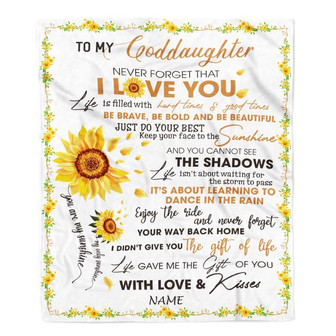 TO MY Goddaughter
NEVER FORGET THAT
I LOVE YOU
Life is filled with hard times & good times
BE BRAVE, BE BOLD AND BE BEAUTIFUL
JUST DO YOUR BEST
Keep your face to the Sunshine
AND YOU CANNOT SEE
THE SHADOWS
Life isn't about waiting for
the storm to pass
IT'S ABOUT LEARNING TO
DANCE IN THE RAIN
Enjoy the ride and never forget
YOUR WAY BACK HOME
I DIDN'T GIVE YOU The gift of life
Life GAVE ME THE Gift OF YOU
WITH LOVE & Kisses
NAME
you are my sunshine
my only sunshine